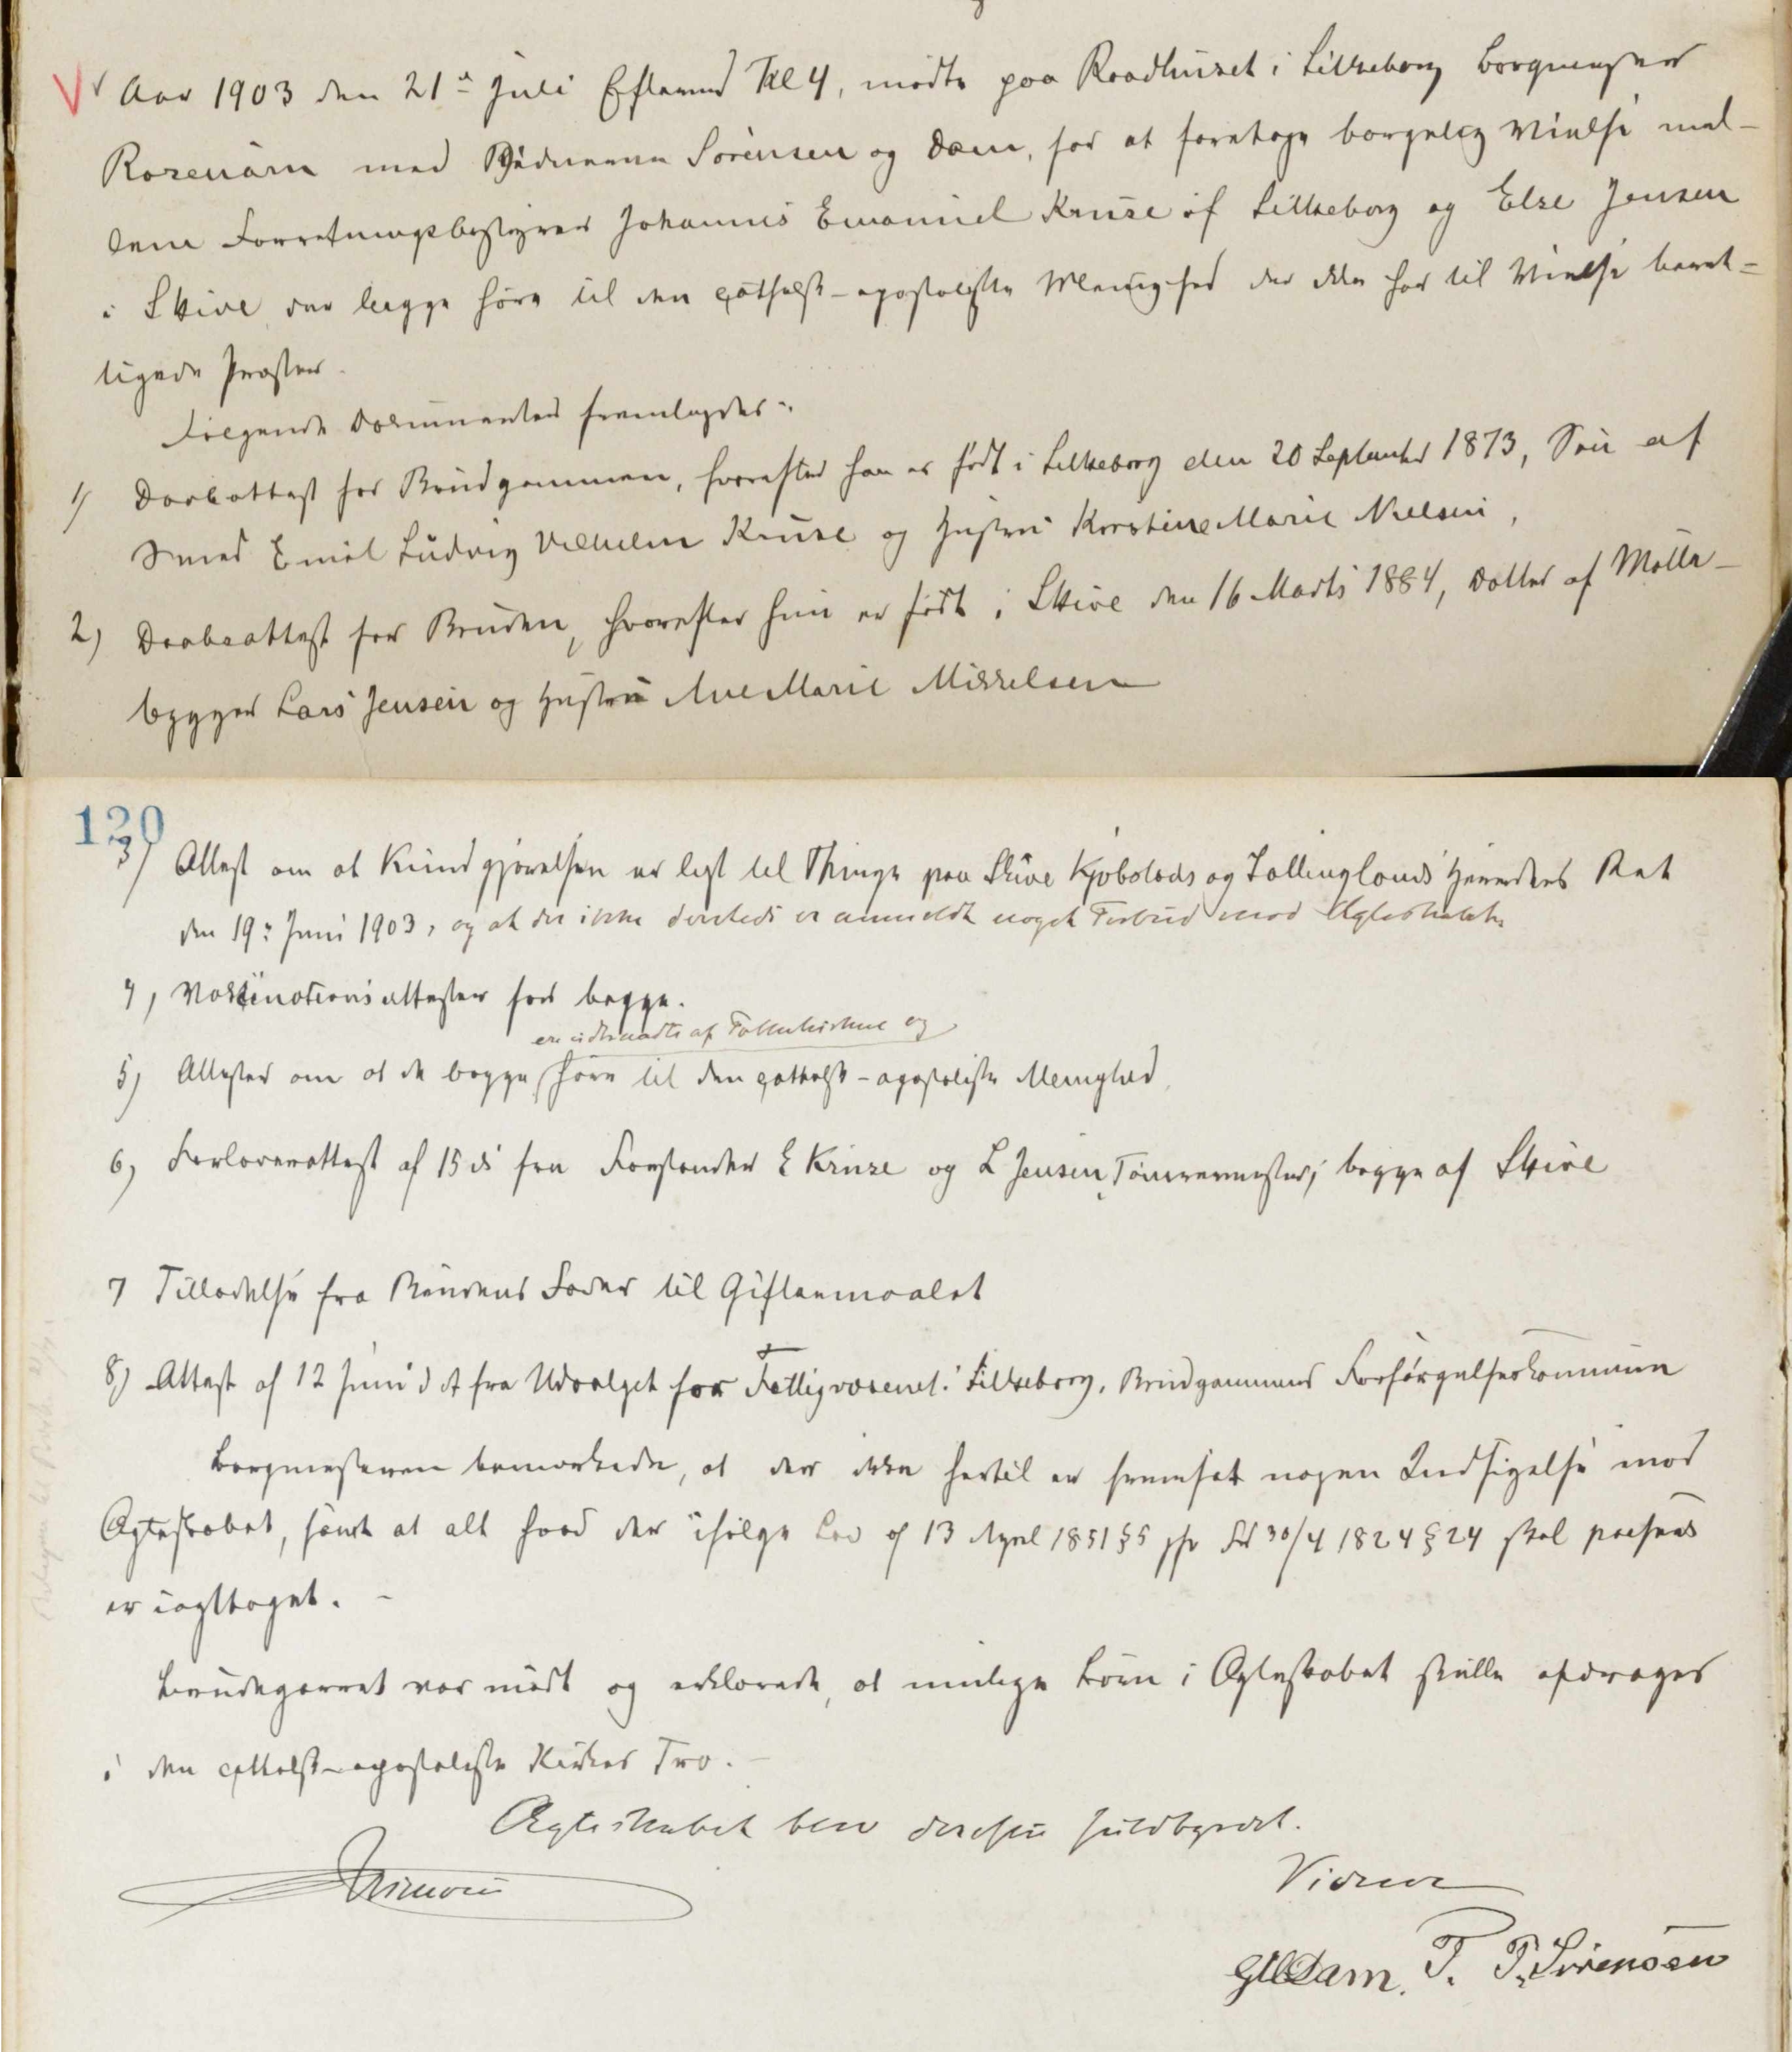 Aar 1903 den 21de Juli Eftermd Kl 4, mødte paa Raadhuset i Silkeborg Borgmester
Rosenørn med Vidnerne Sørensen og Dam, for at foretage borgerlig Vielse mel-
lem Forretningsbestyrer Johannes Emanuel Kruse af Silkeborg og Else Jensen
i Skive der begge høre til den catholsk-apostoliske Menighed der ikke har til Vielse beret-
tigede Præster.
Følgende Dokumenter fremlagdes:
1) Daabsattest for Brudgommen, hvorefter han er født i Silkeborg den 20 September 1873, Søn af
Smed Emil Ludvig Vilhelm Kruse og Hustru Kirstine Marie Nielsen,
2) Daabsattest for Bruden, hvorefter hun er født i Skive den 16 Marts 1884, Datter af Mølle-
bygger Lars Jensen og Hustru Ane Marie Mikkelsen
120
3) Attest om at Kundgjørelsen er læst til Thinge paa Skive Kjøbstads og Salling Herreders Ret
den 19de Juni 1903, og at der ikke dersteds er anmeldt noget Forbud mod Ægteskabet.
4) Vaktinationsattester for begge.
ere udtraadte af Folkekirken og
5) Attester om at de begge høre til den catholsk-apostoliske Menighed
6) Forloverattest af 15 ds fra Forstander E Kruse og L Jensen, Tømrermester, begge af Skive
7 Tilladelse fra Brudens Fader til Giftermaalet
8) Attest af 12 Juni d A fra Udvalget for Fattigvæsenet i Silkeborg, Brudgommens Forsørgelseskommune
Borgmesteren bemærkede, at der ikke hertil er fremsat nogen Indsigelse mod
Ægteskabet, samt at alt hvad der ifølge Lov af 13 April 1851 § 5 jfr Fd 30/4 1824 § 24 skal paases
er iagttaget. -
Brudeparret var mødt og erklærede, at mulige Børn i Ægteskabet skulle opdrages
i den catholsk-apostoliske Kirkes Tro. -
Ægteskabet blev derefter fuldbyrdet.
Vidner
Dam. T. P. Sørensen